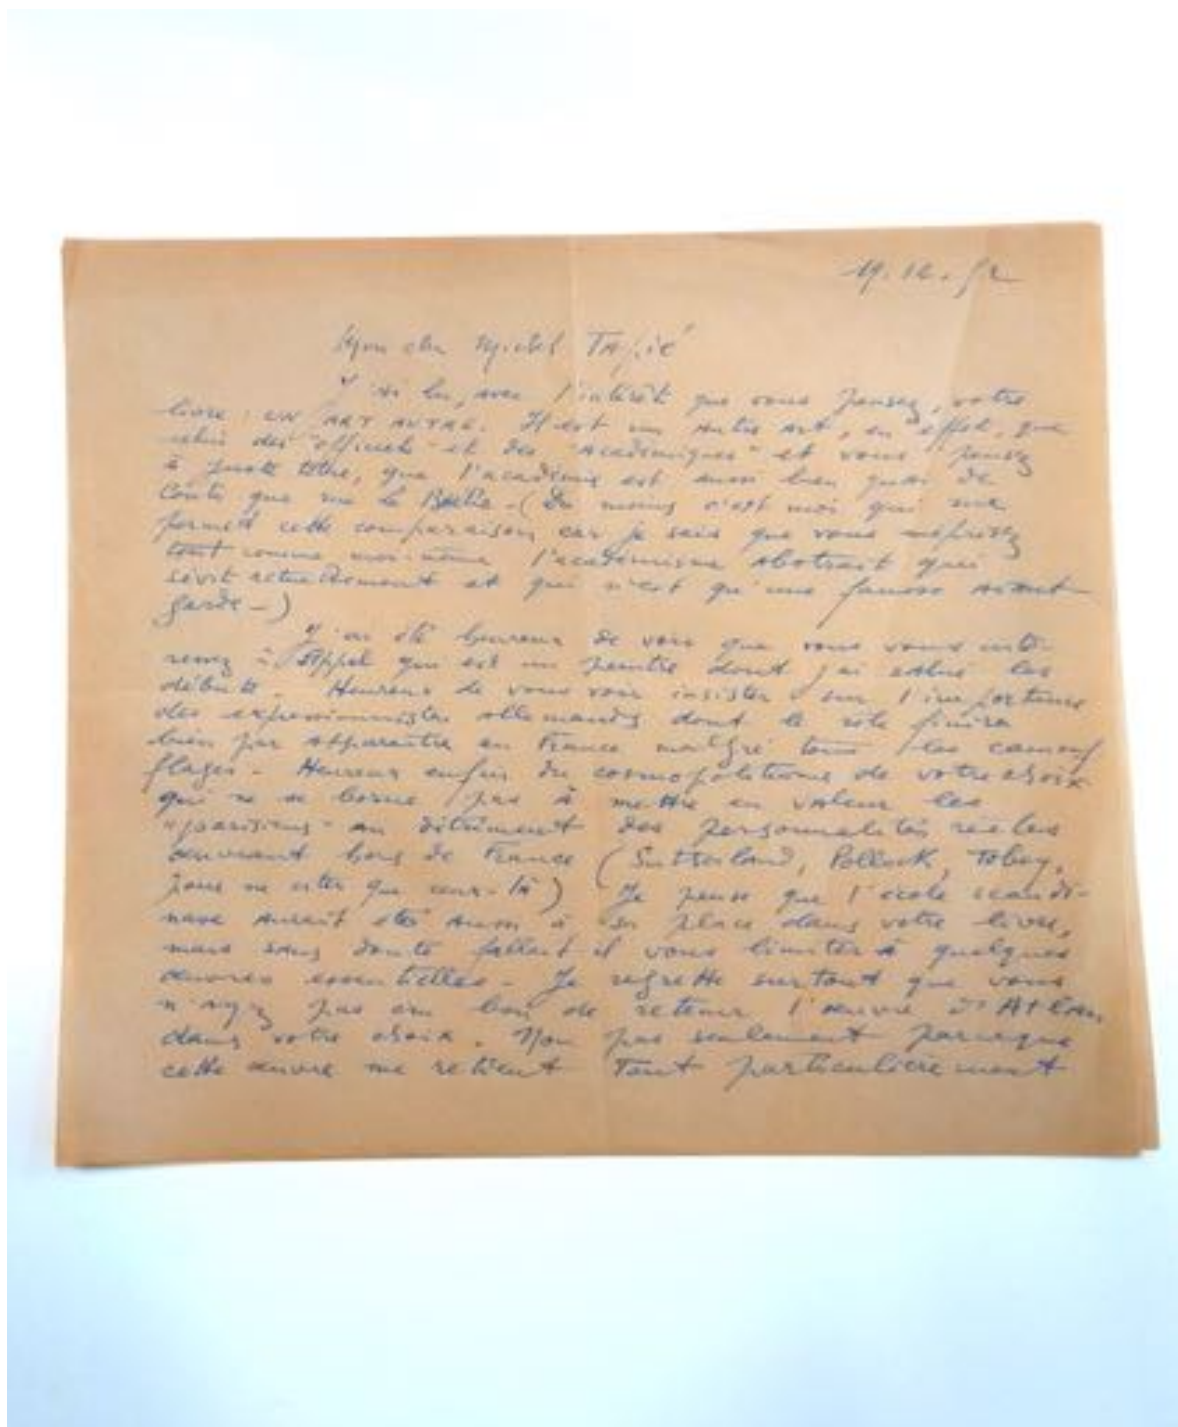 19.12.52
Mon cher Michel Tapié
J'ai lu, avec l'intérêt que vous pensez, votre
livre : UN ART AUTRE. Il est un Autre Art, en effet, que
celui des "officiels" et des "Académiques" et vous pensez
à juste titre, que l'académie est aussi bien quai de
Conti que rue la Boétie - (Du moins c'est moi qui me
permet cette comparaison car je sais que vous méprisez
tout comme moi-même l'académisme Abstrait qui
sévit actuellement et qui n'est qu'une fausse Avant
garde -)
J'ai été heureux de voir que vous vous inté-
ressez à Appel qui est un peintre dont j'ai salué les
débuts. Heureux de vous voir insister sur l'importance
des expressionnistes allemands dont le rôle finira
bien par Apparaître en France malgré tous les camouf
flages - Heureux enfin du cosmopolitisme de votre choix
qui ne se borne pas à mettre en valeur les
"parisiens" au détriment des personnalités réelles
oeuvrant hors de France (Sutherland, Pollock, Tobey,
pour ne citer que ceux-là) Je pense que l'école scandi-
nave aurait été aussi à sa place dans votre livre,
mais sans doute fallait il vous limiter à quelques
oeuvres essentielles - Je regrette surtout que vous
n'ayez pas cru bon de retenir l'oeuvre d'Atlan
dans votre choix. Non pas seulement parceque
cette oeuvre me retient Tout particulièrement